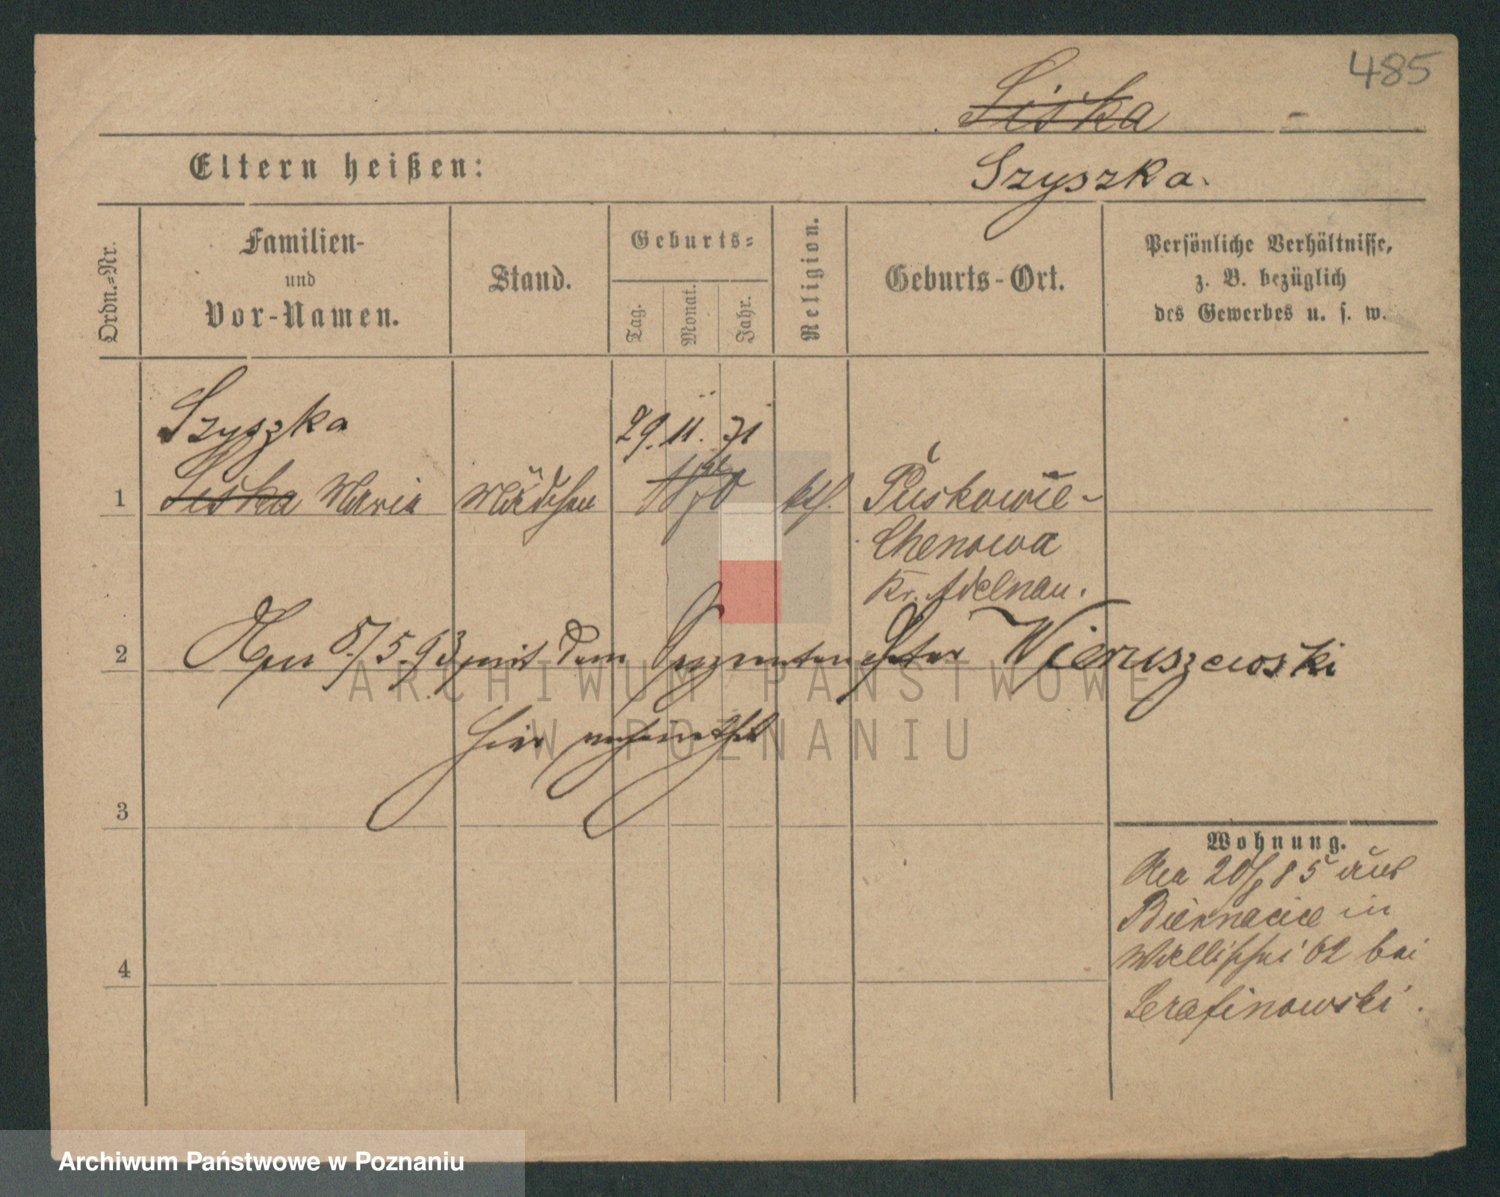 485
Liska
Eltern heißen:
Szyszka.
Ordn.-Nr.
Familien-
und
Vor-Namen.
Stand.
Geburts-
Tag.
Monat.
Jahr.
Religion.
Geburts-Ort.
Persönliche Verhältnisse,
z. B. bezüglich
des Gewerbes u. s. w.
Szyszka
29. 11. 71
1 Liska Maria Mädchen 1870 kth. Puskowie-
Chenowa
Kr. Adelnau.
2 5/5.93 mit dem Peter Wieruszewski
hier verheirathet
3
4
Wohnung.
20/ 85 aus
Biernacice in
Wallischei 62 bei
Serafinowski.
ARCHIWUM PAŃSTWOWE
W POZNANIU
Archiwum Państwowe w Poznaniu